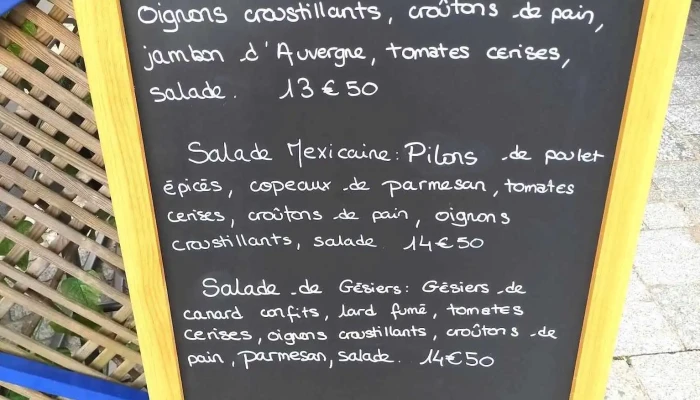 Oignons croustillants, croûtons de pain,
jambon d'Auvergne, tomates cerises,
salade. 13€50
Salade Mexicaine: Pilons de poulet
épicés, copeaux de parmesan, tomates
cerises, croûtons de pain, oignons
croustillants, salade 14€50
Salade de Gésiers: Gésiers de
canard confits, lard fumé, tomates
cerises, oignons croustillants, croûtons de
pain, parmesan, salade. 14€50